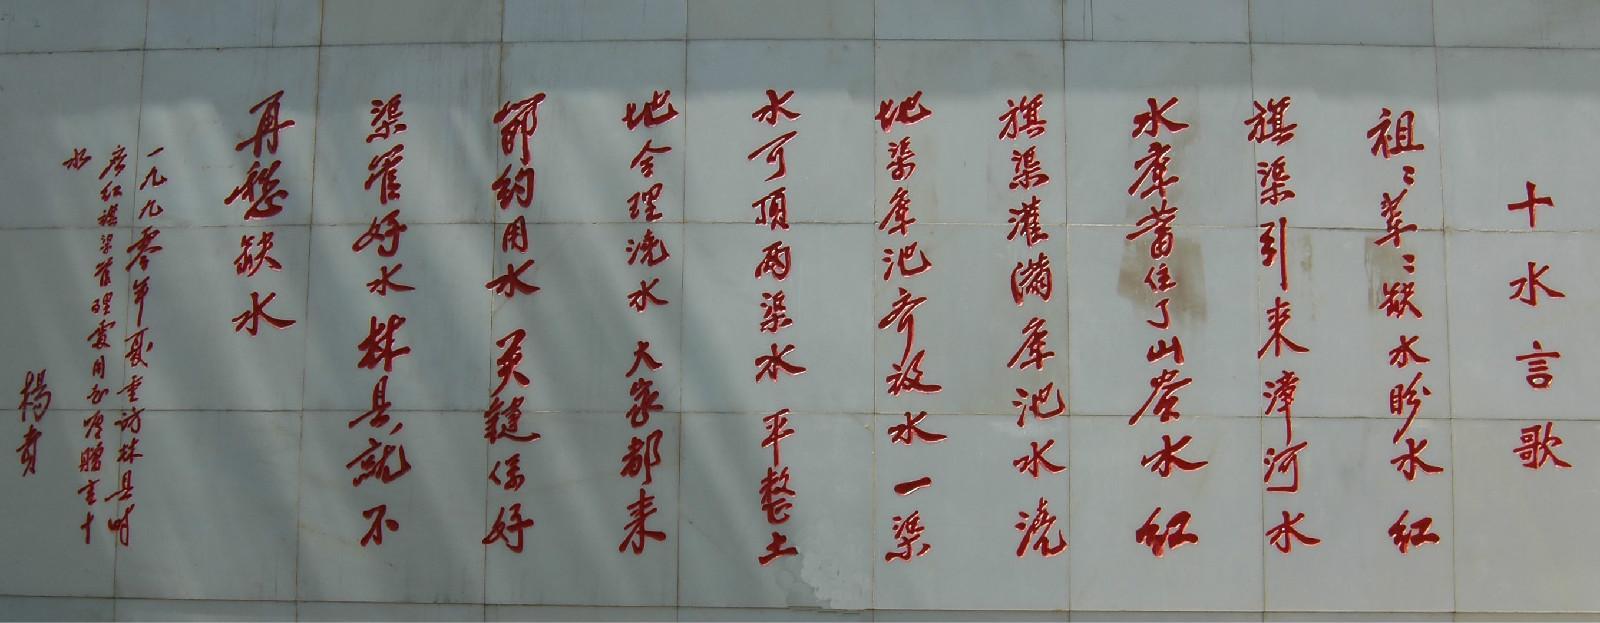 十水言歌
祖〻辈〻缺水盼水 红
旗渠引来漳河水
水库蓄住了山谷水 红
旗渠灌满库池水 浇
地渠库池齐放水 一渠
水可顶两渠水 平整土
地合理浇水 大家都来
節约用水 关键保好
渠管好水 林县就不
再愁缺水
一九九零年夏重访林县时
应红旗渠管理處同志嘱赠言十
水
楊贵